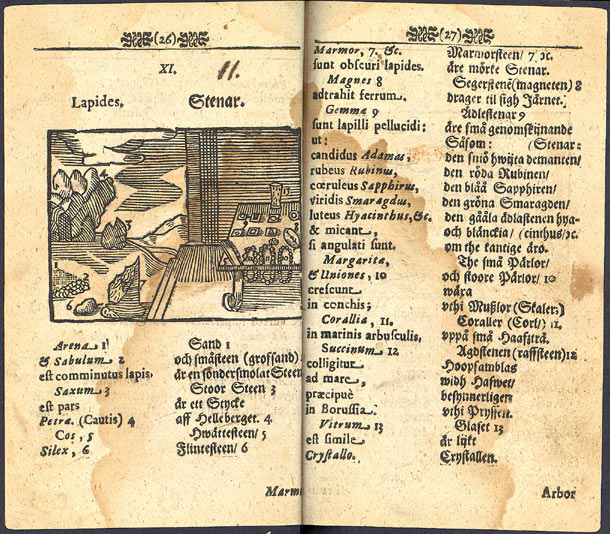 (26)
XI.
11.
Lapides.
Stenar.
1
2
6
Arena 1
& Sabulum 2
est comminutus lapis.
Saxum 3
est pars
Petræ. (Cautis) 4
Cos, 5
Silex, 6
Sand 1
och småsteen (groffsand) 2
är en söndersmolat Steen
Stoor Steen 3
är ett Stycke
aff Helleberget. 4
Hwättesteen/ 5
Flintesteen/ 6
Marm
(27)
Marmor, 7. &c.
sunt obscuri lapides.
Magnes 8
adtrahit ferrum.
Gemmæ 9
sunt lapilli pellucidi:
ut:
candidus Adamas,
rubeus Rubinus,
cœruleus Sapphirus,
viridis Smaragdus,
luteus Hyacinthus, &c.
& micant,
si angulati sunt.
Margaritæ,
& Uniones, 10
crescunt
in conchis;
Corallia, 11.
in marinis arbusculis.
Succinum 12
colligitur
ad mare,
præcipuè
in Borussia.
Vitrum 13
est simile
Crystallo.
Marmorsteen/ 7 ꝛc.
äre mörke Stenar.
Segerstenē (magneten) 8
drager til sigh Järnet.
Ädlestenar 9
äre små genomskijnande
Såsom: (Stenar:
den hwijta demanten/
den röda Rubinen/
den blåå Sapphiren/
den gröna Smaragden/
den gååla ädlastenen hya-
och blänckia/ (cinthus/ꝛc.
om the kantige äro.
The små Pärlor/
och stoore Pärlor/ 10
wäxa
vthi Mußlor (Skaler;)
Coraller (Corl/) 11.
vppå små Haafsträ.
Agdstenen (raffsteen) 12
Hoopsamblas
widh Hafwet/
besynnerligen
vthi Pryssen.
Glaset 13
är lijkt
Crystallen.
Arbor